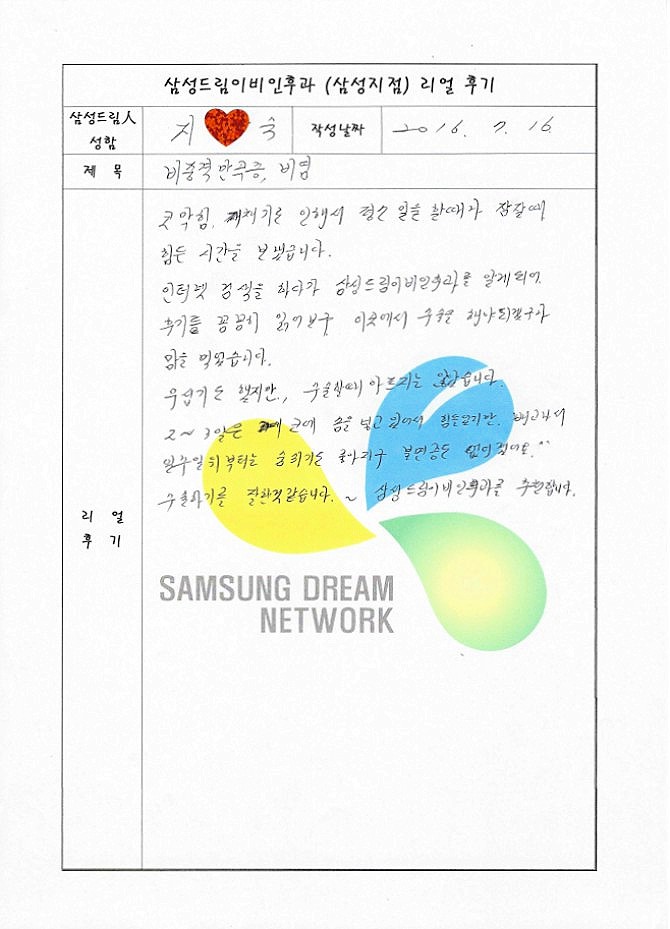 삼성드림이비인후과 (삼성지점) 리얼 후기
삼성드림人
성함
지 숙
작성날짜
2016. 7. 16
제 목
비중격만곡증, 비염
코막힘, 재채기로 인해서 평소 일을 할때나 잠잘때
힘든 시간을 보냈습니다.
인터넷 검색을 하다가 삼성드림이비인후과를 알게되어
후기를 꼼꼼히 읽어보구 이곳에서 수술 해야되겠구나
맘을 먹었습니다.
무섭기도 했지만, 수술할때 아프지는 않았습니다.
2~3일은 코에 솜을 넣고 있어서 힘들었지만,
일주일뒤부터는 숨쉬기도 좋아지구 불면증도 없어졌어요.^^
수술하기를 잘한것같습니다. ~ 삼성드림이비인후과를 추천합니다.
리 얼
후 기
SAMSUNG DREAM
NETWORK